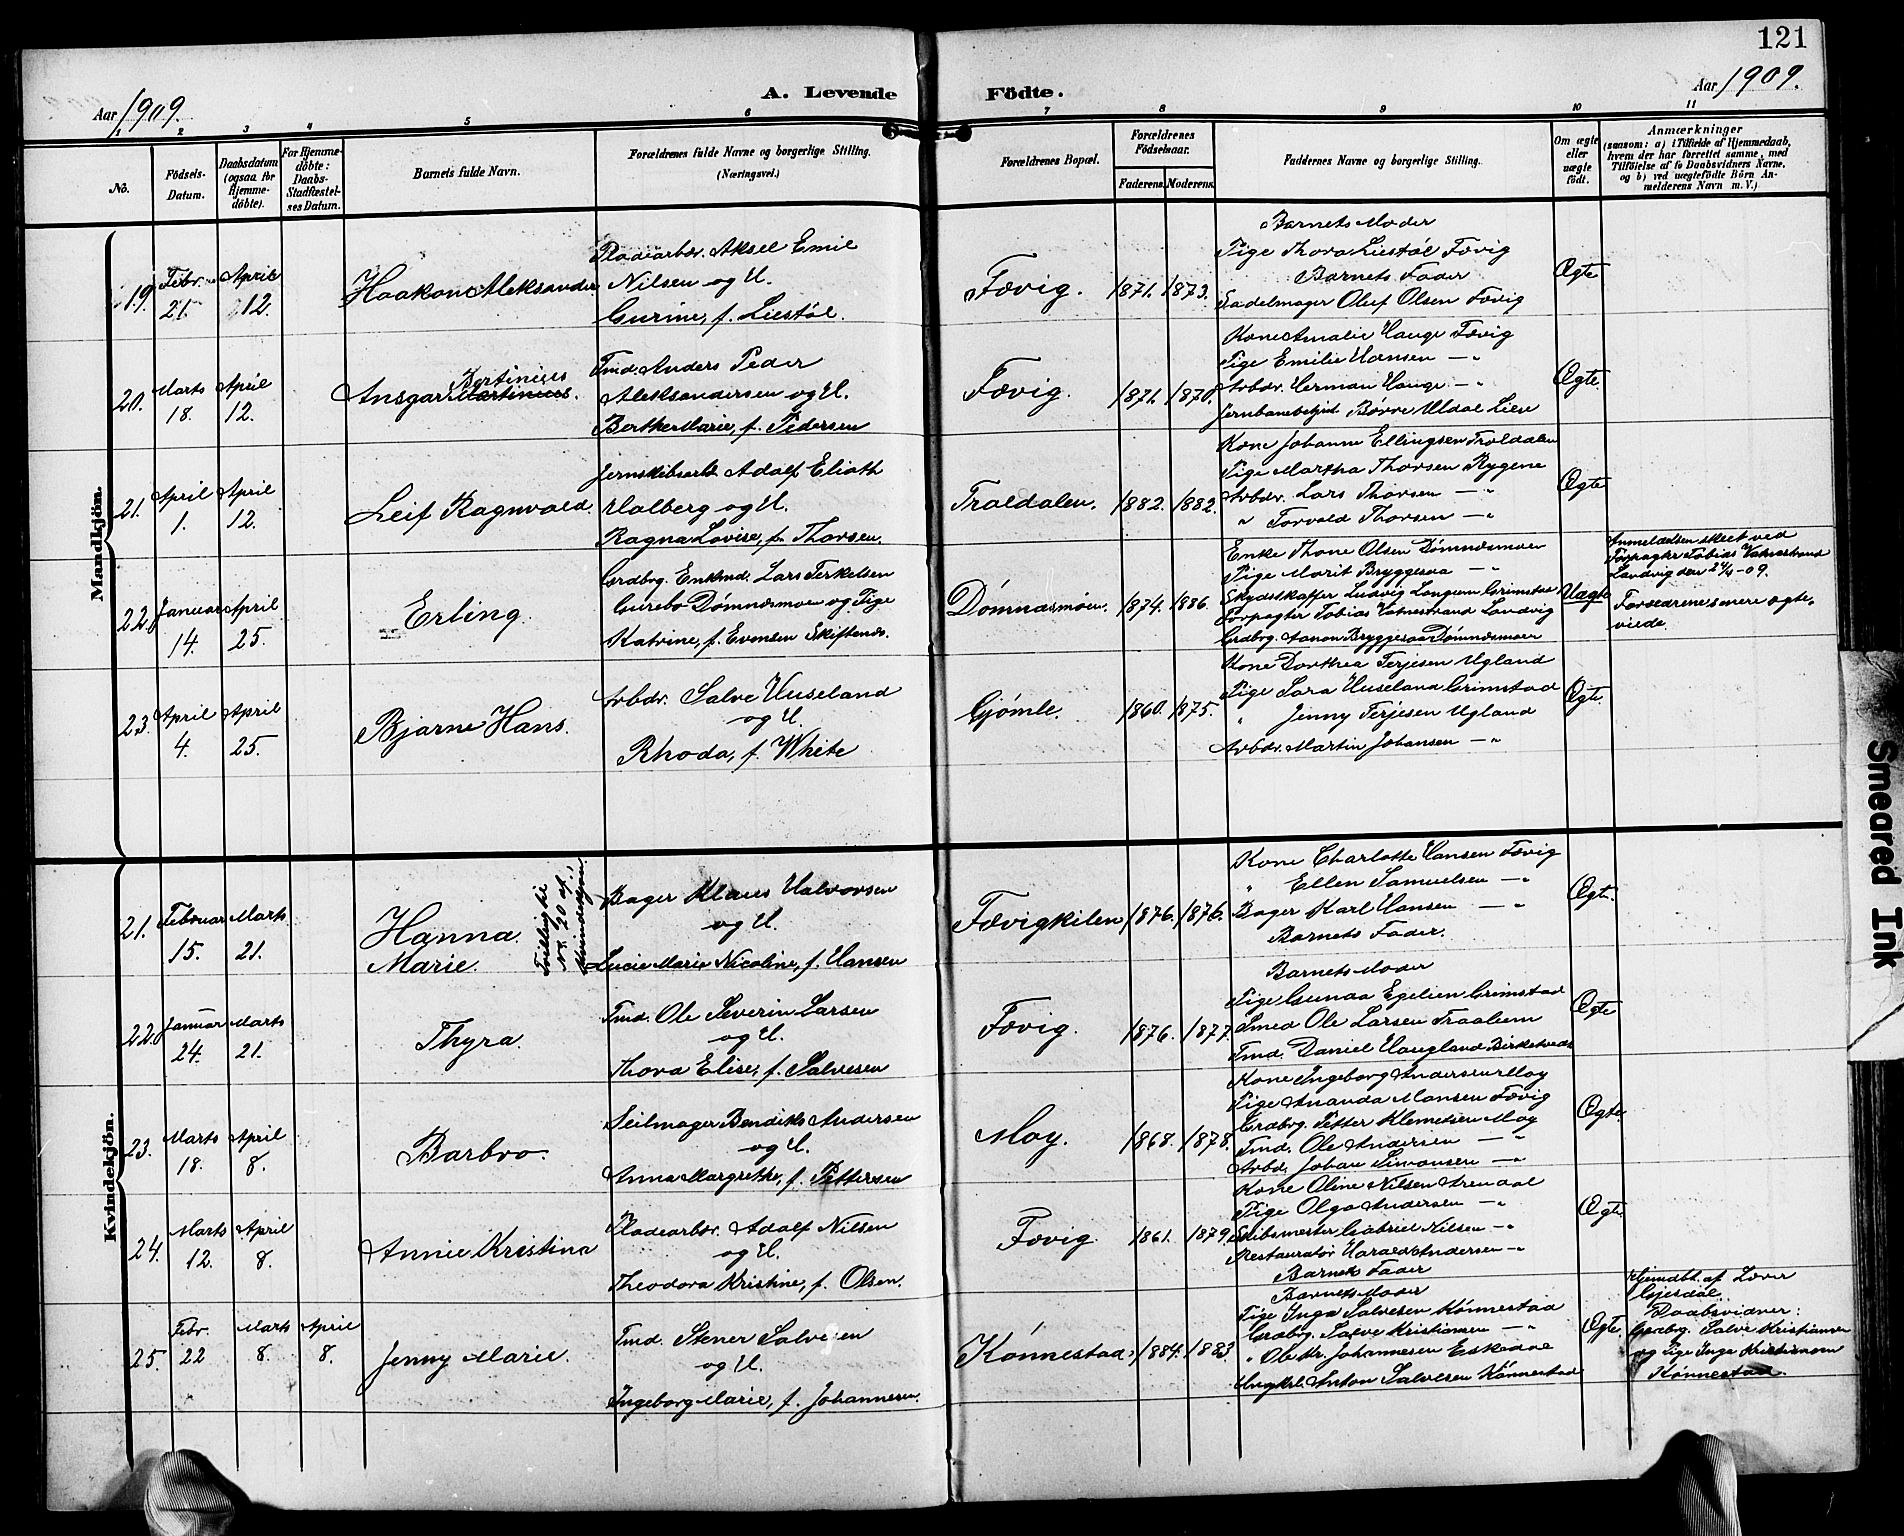 121
Aar 1909.
A. Levende Födte.
Aar 1909.
1 2 3 4 5 6 7 8 9 10 11
No.
Födsels-Datum.
Daabsdatum (ogsaa for Hjemme-döbte).
For Hjemme-döbte: Daabs-Stadfæstel-ses Datum.
Barnets fulde Navn.
Forældrenes fulde Navne og borgerlige Stilling. (Næringsvei.)
Forældrenes Bopæl.
Forældrenes Födselsaar.
Faderens. Moderens.
Faddernes Navne og borgerlige Stilling.
Om ægte eller uægte födt.
Anmærkninger
(saasom: a) i Tilfælde af Hjemmedaab, hvem der har forrettet samme, med Tilföielse af to Daabsvidners Navne, og b) ved uægtefödte Börn Anmelderens Navn m. V.)
Mandkjön.
19. Febr. 21. April 12. Haakon Aleksander
Pladearbdr. Aksel Emil
Nilsen og H.
Gurine, f. Liestøl.
Fævig. 1871. 1873.
Barnets Moder
Pige Thora Liestøl Fævig
Barnets Fader
Sadelmager Oluf Olsen Fævig
Ægte
20. Marts 18. April 12. Ansgar Bertinius
Tmd. Anders Peder
Aleksandersen og H.
Berthe Marie, f. Pedersen
Fævig. 1871. 1870.
Kone Amalie Hauge Fævig
Pige Emilie Hansen — "
Arbdr. Herman Hauge — "
Jernbanebetjnt. Børre Uldal Lien
Ægte
21. April 1. April 12. Leif Ragnvald.
Jernskibsarb. Adolf Eliath
Halberg og H.
Ragna Lovise, f. Thorsen.
Troldalen. 1882. 1882.
Kone Johanne Ellingsen Troldalen
Pige Martha Thorsen Rygene
Arbdr. Lars Thorsen — "
" Torvald Thorsen — "
Ægte
22. Januar 14. April 25. Erling.
Grdbrg. Enkmd. Lars Terkelsen
Gurebo Dømnesmoen og Pige
Katrine, f. Evensen Skiftenes.
Dømnesmoen. 1874. 1886.
Enke Thone Olsen Dømnesmoen
Pige Marit Bryggesaa — "
Skydsskaffer Ludvig Langum Grimstad
Forpagter Tobias Vatnestrand Landvig
Grdbrg. Aanon Bryggesaa Dømnesmoen
Uægte
Anmeldelsen skeet ved
Forpagter Tobias Vatnestrand
Landvig den 24/4-09.
Forældrene senere ægte-
viede.
23. April 4. April 25. Bjarne Hans.
Arbdr. Salve Huseland
og H.
Rhoda, f. White
Gjømle. 1860. 1875.
Kone Dorthea Terjesen Ugland
Pige Sara Huseland Grimstad
" Jenny Terjesen Ugland
Arbdr. Martin Johansen — "
Ægte.
Kvindekjön.
21. Februar 15. Marts 21. Hanna
Marie.
Tvilling til
No. 20 af
Kvindekjøn.
Bager Klaus Halvorsen
og H.
Lucie Marie Nicoline, f. Hansen
Fævigkilen 1876. 1876.
Kone Charlotte Hansen Fævig
" Ellen Samuelsen — "
Bager Karl Hansen — "
Barnets Fader.
Ægte.
22. Januar 24. Marts 21. Thyra.
Tmd. Ole Severin Larsen
og H.
Thora Elise, f. Salvesen
Fævig. 1876. 1877.
Barnets Moder
Pige Gunda Egelien Grimstad
Smed Ole Larsen Traalum
Tmd. Daniel Haugland Birketveds
Ægte
23. Marts 18. April 8. Barbro.
Seilmager Bendiks Andersen
og H.
Anna Margrethe, f. Pettersen
Moy. 1868. 1878.
Kone Ingeborg Andersen Moy
Pige Ananda Monsen Fævig
Grdbrg. Petter Klemetsen Moy
Tmd. Ole Andersen — "
Arbd. Johan Simonsen — "
Ægte
24. Marts 12. April 8. Annie Kristina
Pladearbdr. Adolf Nilsen
og H.
Theodora Kristine, f. Olsen.
Fævig 1861. 1879.
Kone Oline Nilsen Arendal
Pige Olga Andersen — "
Skibsmester Gabriel Nilsen — "
Restauratør Harald Andersen — "
Barnets Fader
Ægte.
25. Febr. 22 Marts 8. April 8. Jenny Marie.
Tmd. Stener Salvesen
og H.
Ingeborg Marie, f. Johannesen.
Kønnestad. 1884. 1883.
Barnets Moder
Pige Inga Salvesen Kønnestad
Grdbrg. Salve Kristiansen — "
" Ole Kr. Johannesen Eskedal
Ungkrl. Anton Salvesen Kønnestad
Ægte.
Hjemdbt. af Lærer
Gjesdal.
Daabsvidner:
Grdbrg. Salve Kristiansen
og Pige Inga Kristiansen
Kønnestad.
Smeared Ink